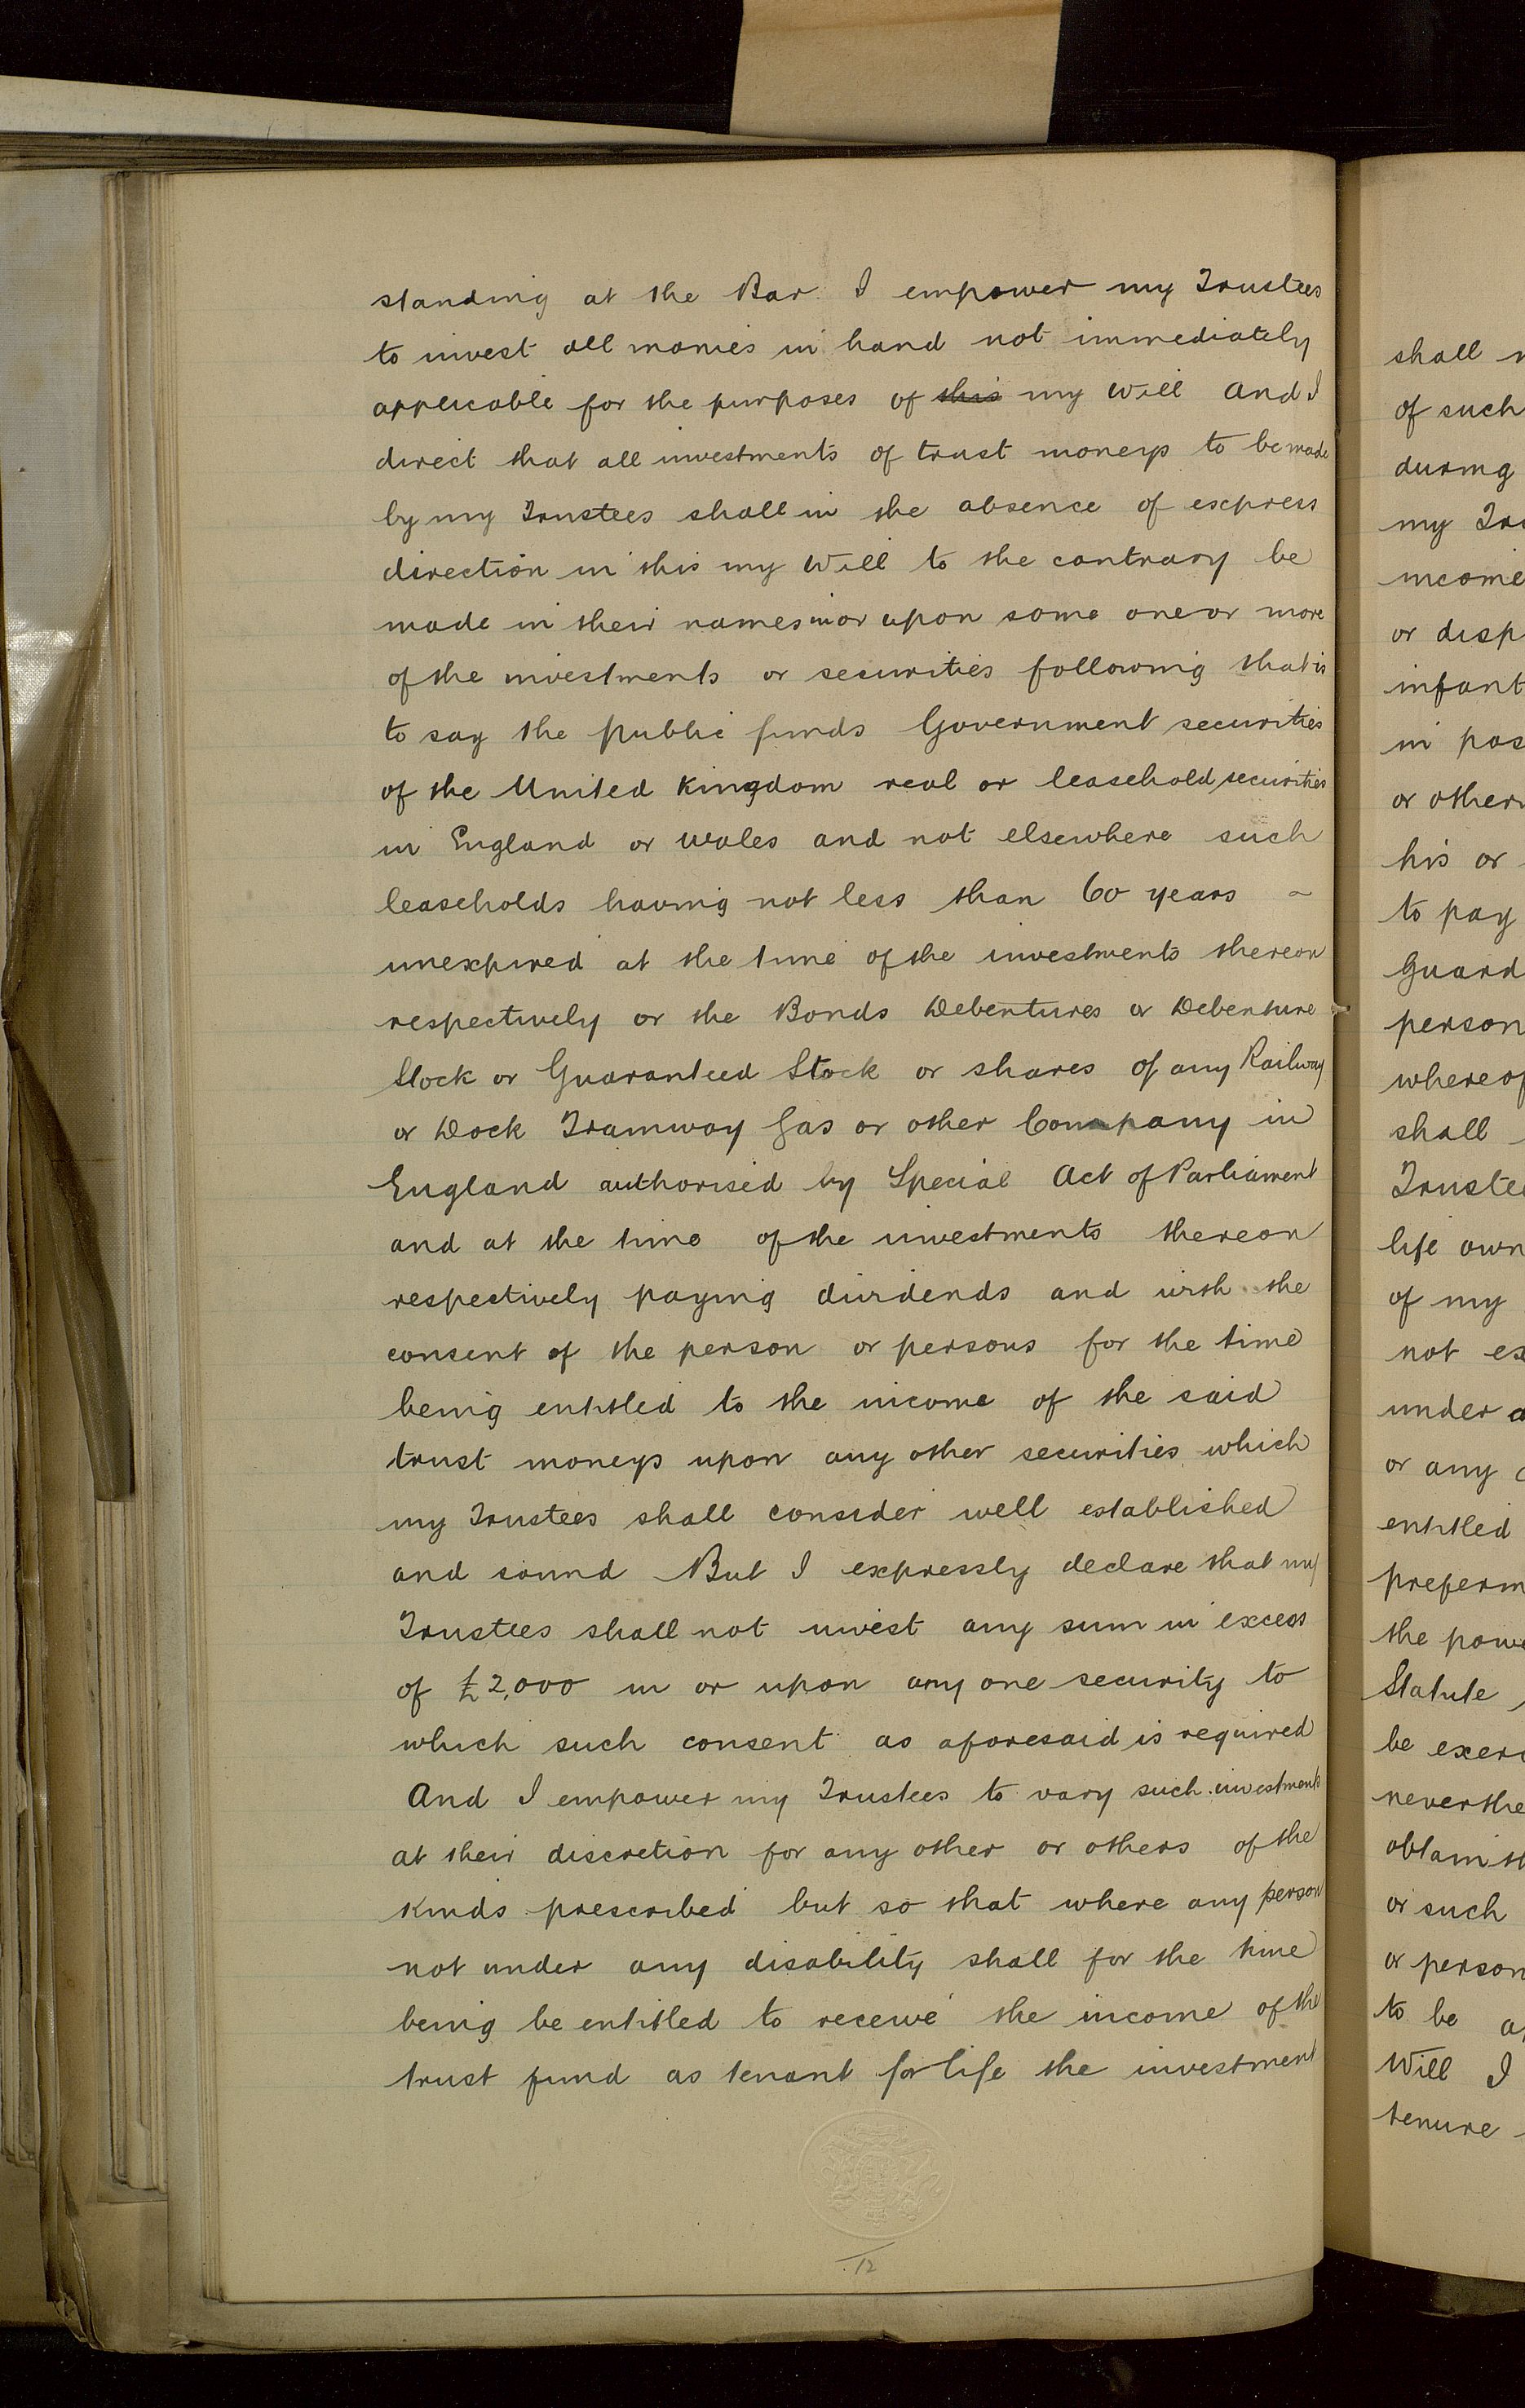 standing at the Bar. I empower my Trustees
to invest all monies in hand not immediately
applicable for the purposes of this my Will And I
direct that all investments of trust moneys to be made
by my Trustees shall in the absence of express
direction in this my Will to the contrary be
made in their names in or upon some one or more
of the investments or securities following that is
to say the public funds Government securities
of the United Kingdom real or leasehold securities
in England or Wales and not elsewhere such
leaseholds having not less than 60 years ~
unexpired at the time of the investments thereon
respectively or the Bonds Debentures or Debenture
Stock or Guaranteed Stock or shares of any Railway
or Dock Tramway Gas or other Company in
England authorised by Special Act of Parliament
and at the time of the investments thereon
respectively paying dividends and with the
consent of the person or persons for the time
being entitled to the income of the said
trust moneys upon any other securities which
my Trustees shall consider well established
and sound But I expressly declare that my
Trustees shall not invest any sum in excess
of £2,000 in or upon any one security to
which such consent as aforesaid is required
And I empower my Trustees to vary such investments
at their discretion for any other or others of the
kinds prescribed but so that where any person
not under any disability shall for the time
being be entitled to receive the income of the
trust fund as tenant for life the investment
12
shall
of such
during
my
income
or
infant
in
or
his or
to pay
Guard
person
whereof
shall
Trustee
life own
of my
not
under
or any
entitled
preferm
the
Statute
be
neverthe
obtain
or such
or person
to be
Will I
tenure